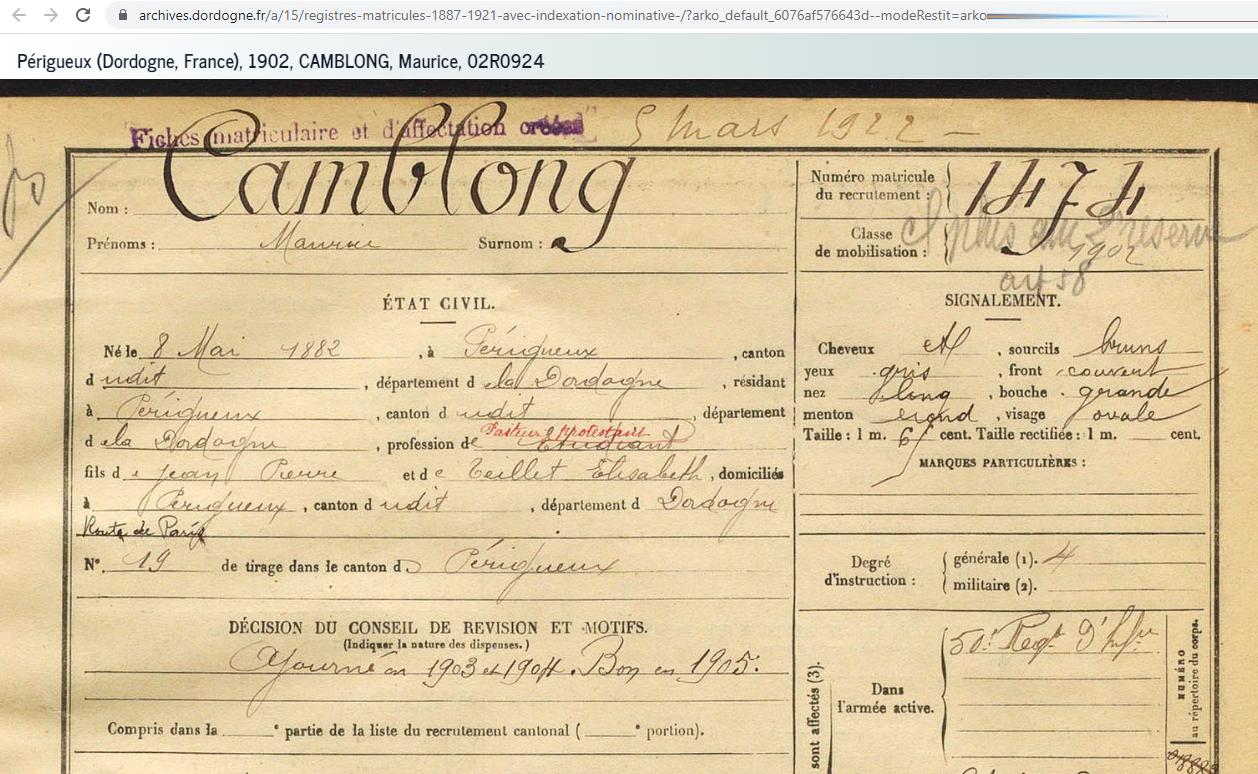 archives.dordogne.fr/a/15/registres-matricules-1887-1921-avec-indexation-nominative-/?arko_default_6076af576643d--modeRestit=arko
Périgueux (Dordogne, France), 1902, CAMBLONG, Maurice, 02R0924
Fiches matriculaire et d'affectation créées 5 Mars 1922 –
Nom : Camblong
Prénoms : Maurice Surnom :
Numéro matricule du recrutement : 1474
Classe de mobilisation : 1902
plus au réserve
art 58
ÉTAT CIVIL.
Né le 8 Mai 1882, à Périgueux, canton
d udit, département d e la Dordogne, résidant
à Périgueux, canton d udit, département
d e la Dordogne, profession de Pasteur Protestant Etudiant
fils d e Jean Pierre et de Teillet Elisabeth, domiciliés
à Périgueux, canton d udit, département d Dordogne
Route de Paris
N° 19 de tirage dans le canton d Périgueux
DÉCISION DU CONSEIL DE REVISION ET MOTIFS.
(Indiquer la nature des dispenses.)
Ajourné en 1903 et 1904. Bon en 1905.
Compris dans la ° partie de la liste du recrutement cantonal ( ° portion).
SIGNALEMENT.
Cheveux et, sourcils bruns
yeux gris, front couvert
nez long, bouche grande
menton rond, visage ovale
Taille : 1 m. 61 cent. Taille rectifiée : 1 m. cent.
MARQUES PARTICULIÈRES :
Degré d'instruction : générale (1). 4
militaire (2).
sont affectés (3).
Dans l'armée active.
50e Regt d'Infie
NUMÉRO
au répertoire du corps.